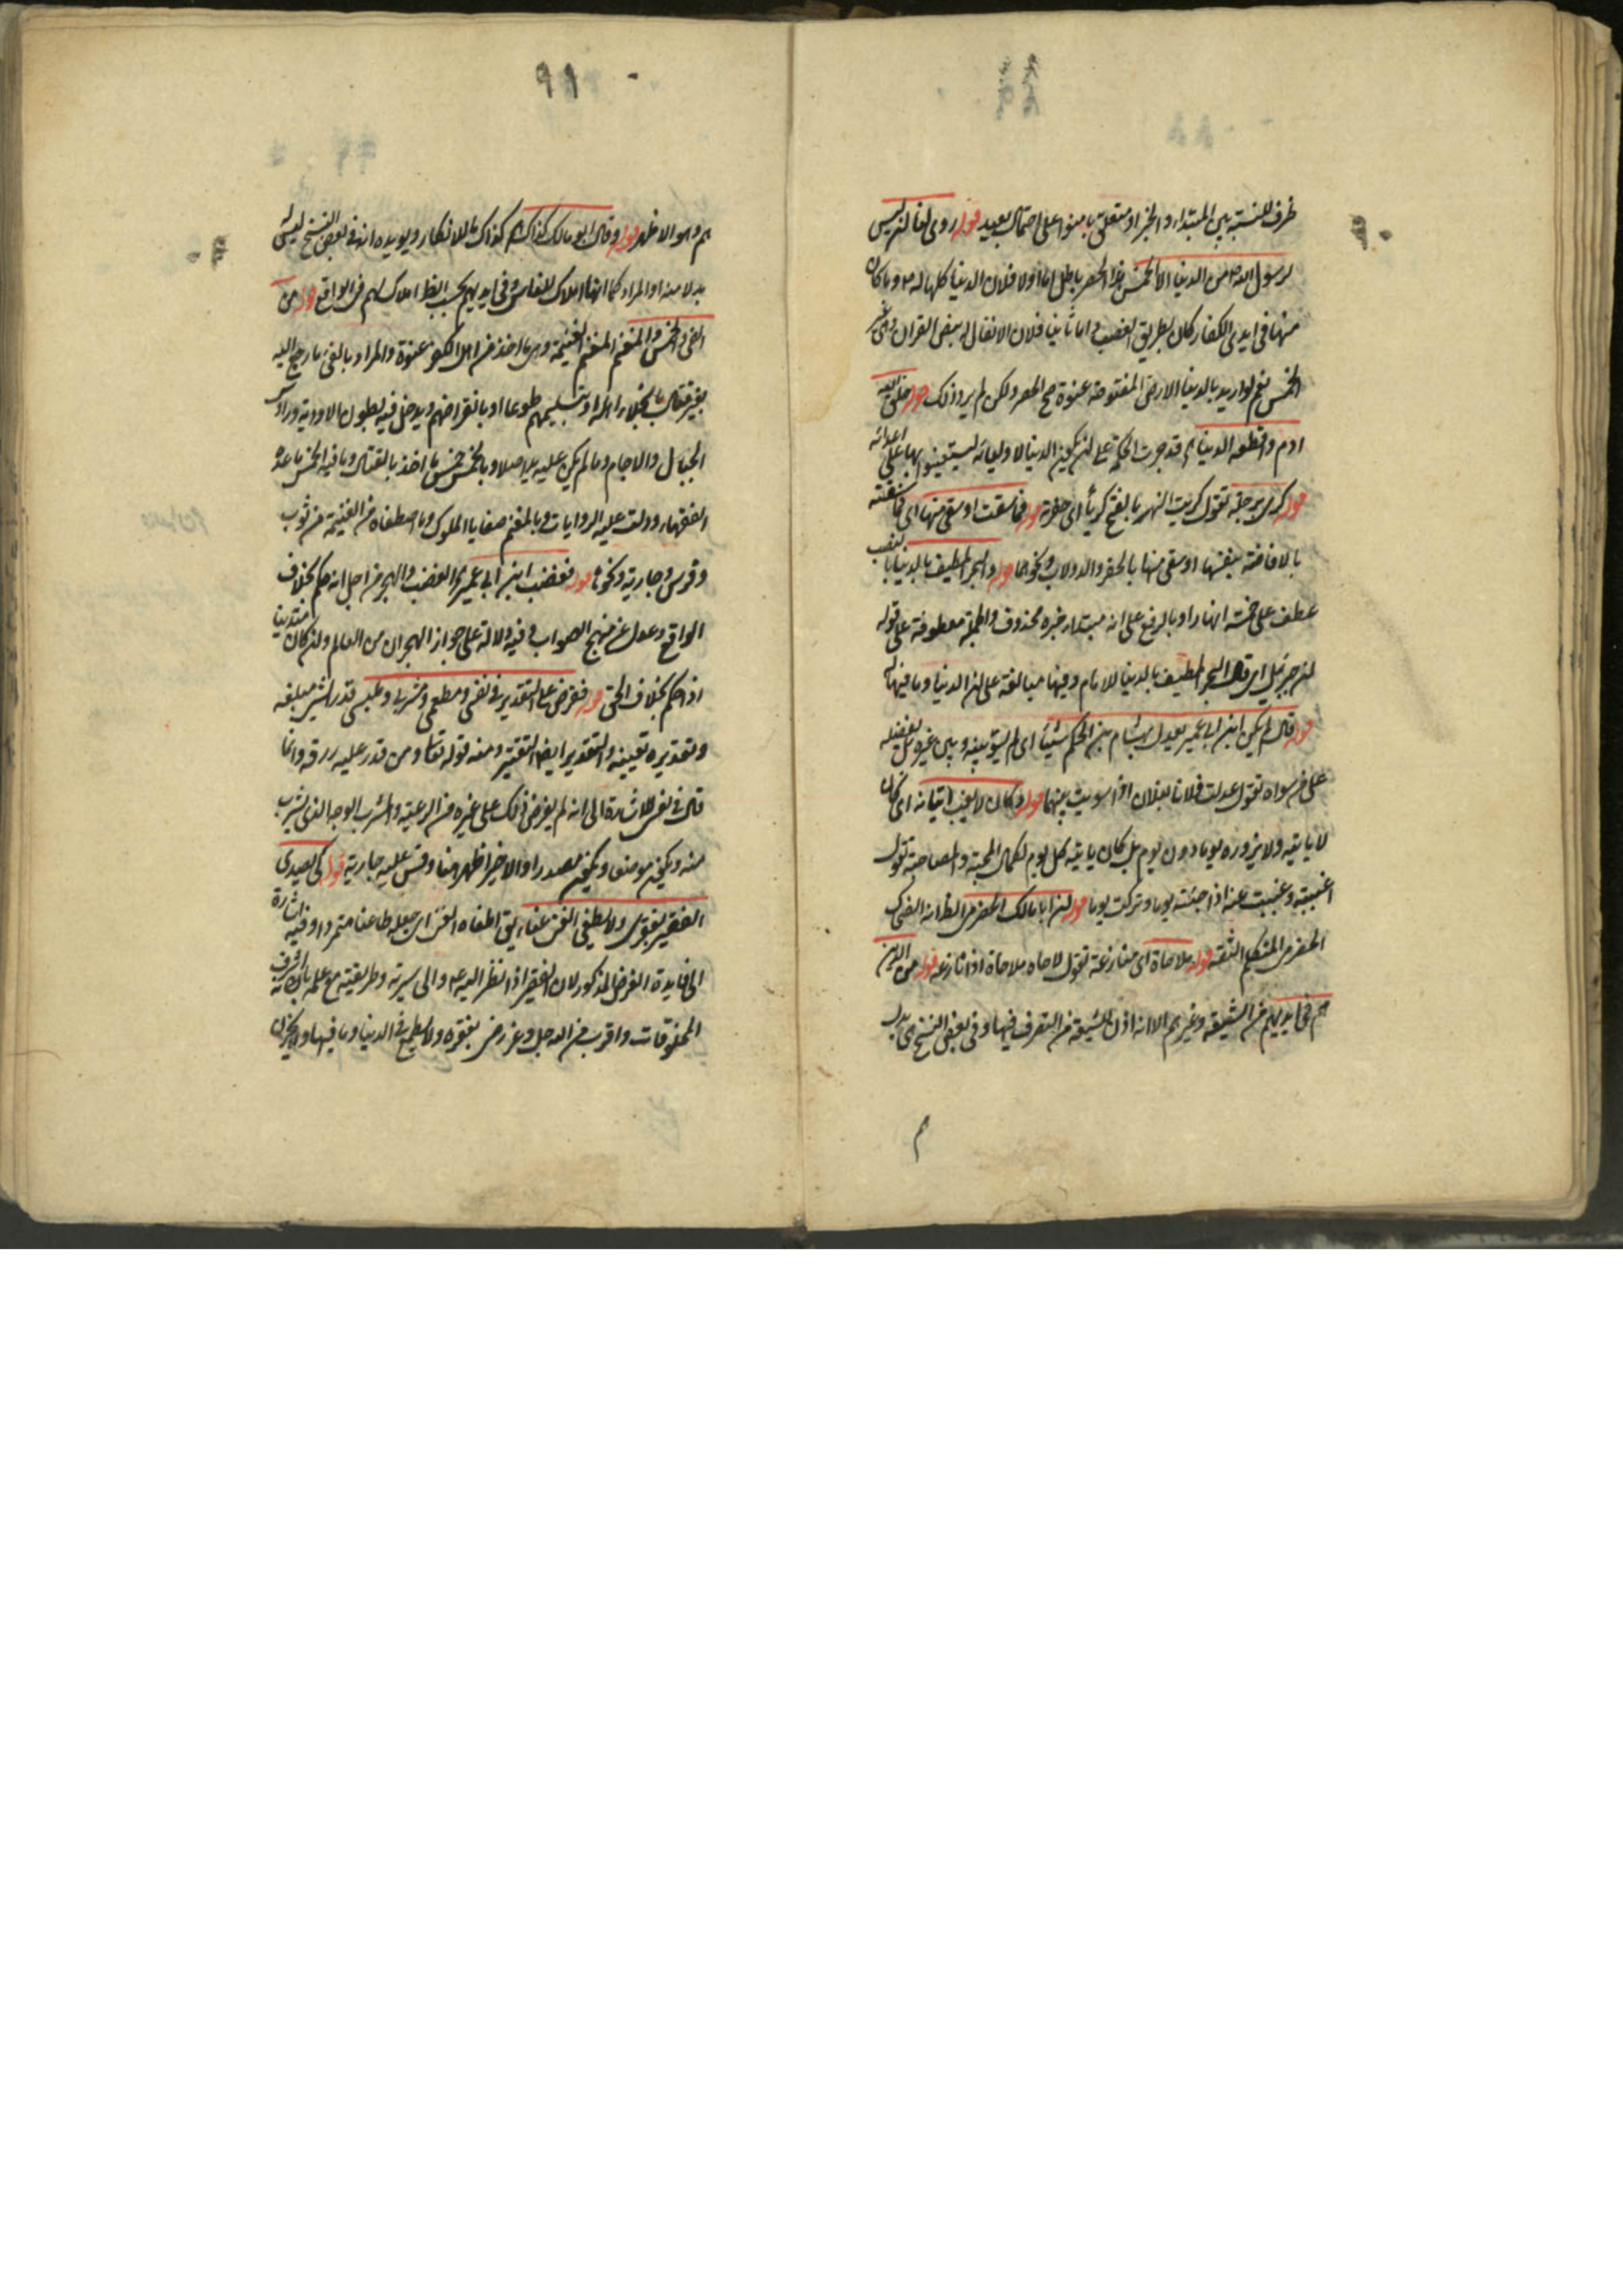 ظرف للنسبة بين المبتداء والخبر او متعلق بامنوا على احتمال بعيد قوله روى لنا لن ليس
لرسول الله ص من الدنيا الا الخمس هذا الحصر باطل اما اولا فلان الدنيا كلها له ص وما كان
منها فى ايدى الكفار كان بطريق الغصب واما ثانيا فلان الانفال له بنص القران وهى غير
الخمس نعم لو اريد بالدنيا الارض المفتوحة عنوة صح الحصر ولكن لم يرد ذلك قوله خلق الله
ادم واقطعه الدنيا قد جرت الحكمة على لن يكون الدنيا لاوليائه ليستعينوا بها على اعدائه
قوله كرى برجله تقول كريت النهر بالفتح كريا اى حفرته قوله فما سقت او سقى منها اى فما سقته
بالافاضة بنفسها او سقى منها بالحفر والدولاب ونحوهما قوله والبحر المطيف بالدنيا بالنصب
عطف على خمسة انهار او بالرفع على انه مبتداء خبره محذوف والجملة معطوفة على قوله
لن جبرئيل اى قال البحر المطيف بالدنيا للامام وفيها مبالغة على لن الدنيا وما فيها له
قوله قال لم يكن ابن ابى عمير يعدل بهشام بن الحكم شيئا اى لم يسو بينه وبين غيره بل يفضله
على من سواه تقول عدلت فلانا بفلان اذا سويت بينهما قوله وكان لا يغب اتيانه اى كان
لا ياتيه ولا يزوره يوما دون يوم بل كان ياتيه كل يوم لكمال المحبة والمصاحبة تقول
اغببته وغببت عنه اذا جئته يوما وتركت يوما قوله لن ابا مالك الحضرمى الظ انه الضحاك
الحضرمى المتكلم الثقة قوله ملاحاة اى منازعة تقول لاحاه ملاحاة اذا نازعه قوله من الذين
هم فى ايديهم من الشيعة وغيرهم الا انه اذن للشيعة فى التصرف فيها وفى بعض النسخ هى بدل
م
٩٩
هم وهو الاظهر قوله وقال ابو مالك كذلك كذلك للانكار ويويده انه فى بعض النسخ ليس له
بدلا منه او المراد كما انها املاك للناس فى ايديهم بحسب الظ املاك لهم فى الواقع قوله من
الفئ والخمس والمغنم المغنم الغنيمة وهى ما اخذ من اهل الكفر عنوة والمراد بالفئ ما رجع اليه
بغير قتال بانجلاء اهله او بتسليمهم طوعا او بانقراضهم ويدخل فيه بطون الاودية ورؤس
الجبال والاجام وما لم يكن عليه يد اصلا وبالخمس خمس ما اخذ بالقتال وما فيه الخمس ما عده
الفقهاء ودلت عليه الروايات وبالمغنم صفايا الملوك وما اصطفاه من الغنيمة من ثوب
وفرس وجارية ونحوها قوله فغضب ابن ابى عمير الغضب والهجر من اجل انه حكم بخلاف
الواقع وعدل عن منهج الصواب وفيه دلالة على جواز الهجران من العالم ولن كان متدينا
اذا حكم بخلاف الحق قوله ففرض على التقدير فى نفسى ومطعمى ومشربى وملبسى قدر الشئ مبلغه
وتقديره تعيينه والتقدير ايضا التقتير ومنه قوله تعا ومن قدر عليه رزقه وانما
قال فى نفسى للاشارة الى انه لم يفرض ذلك على غيره من الرعية والمشرب الوجه الذى يشرب
منه ويكون موضعا ويكون مصدرا والاخير اظهر هنا وقس عليه جاريه قوله كى يقتدى
الفقير بفقرى ولا يطغى الغنى غناه يق اطغاه الغنى اى جعله طاغيا متمردا وفيه اشارة
الى فايدة الفرض المذكور لان الفقير اذا نظر اليه ع والى سيرته وطريقته مع علمه بانه اشرف
المخلوقات واقرب من الله جل وعز رضى بفقره ولا يطمع فى الدنيا وما فيها ولا يحزن